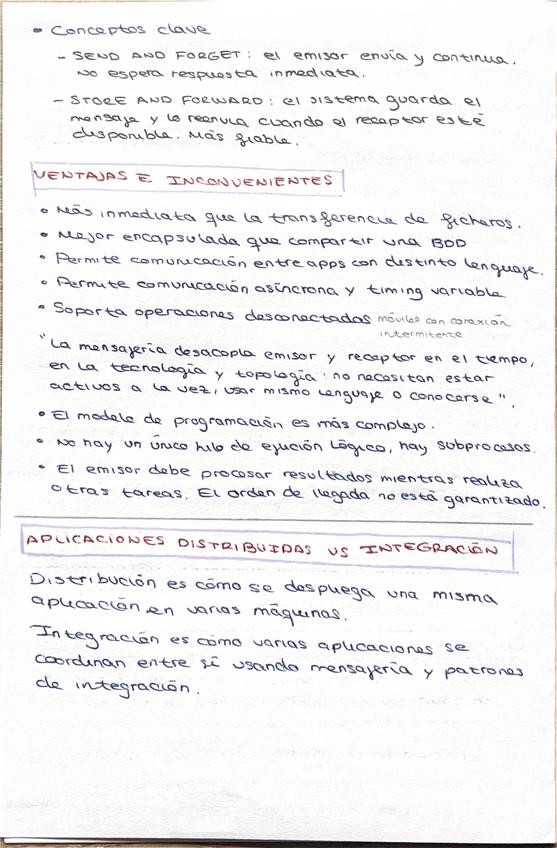 • Conceptos clave
- SEND AND FORGET: el emisor envía y continua.
No espera respuesta inmediata.
- STORE AND FORWARD: el sistema guarda el
mensaje y lo reenvía cuando el receptor esté
disponible. Más fiable.
VENTAJAS E INCONVENIENTES
• Más inmediata que la transferencia de ficheros.
• Mejor encapsulada que compartir una BDD
• Permite comunicación entre apps con distinto lenguaje.
• Permite comunicación asíncrona y timing variable
• Soporta operaciones desconectadas móviles con conexión
intermitente
"La mensajería desacopla emisor y receptor en el tiempo,
en la tecnología y topología: no necesitan estar
activos a la vez, usar mismo lenguaje o conocerse".
• El modelo de programación es más complejo.
• No hay un único hilo de ejución lógico, hay subprocesos.
• El emisor debe procesar resultados mientras realiza
otras tareas. El orden de llegada no está garantizado.
APLICACIONES DISTRIBUIDAS VS INTEGRACIÓN
Distribución es cómo se despliega una misma
aplicación en varias máquinas.
Integración es cómo varias aplicaciones se
coordinan entre sí usando mensajería y patrones
de integración.